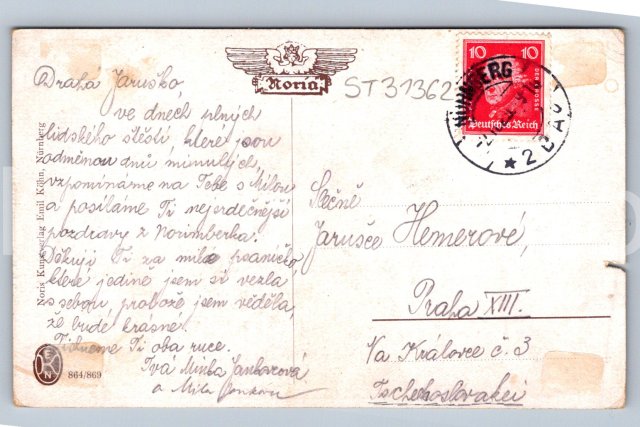 Noria
ST31362
10 10
DER GROSSE
Deutsches Reich
NÜRNBERG
* 2 BAU
Drahá Jaruško,
ve dnech plných
lidského štěstí, které jsou
odměnou dnů minulých,
vzpomínáme na Tebe s Milou
a posíláme Ti nejsrdečnější
pozdravy z Norimberka.
Děkuji Ti za milé psaníčko,
které jedině jsem si vezla
s sebou, protože jsem věděla,
že budé krásné.
Tiskneme Ti oba ruce.
Tvá Minka
a Mila
Slečně
Jarušce Hemerové,
Praha XIII.
Na Královce č. 3
Tschechoslovakei
Noris Kunstverlag Emil Köhn, Nürnberg
864/869